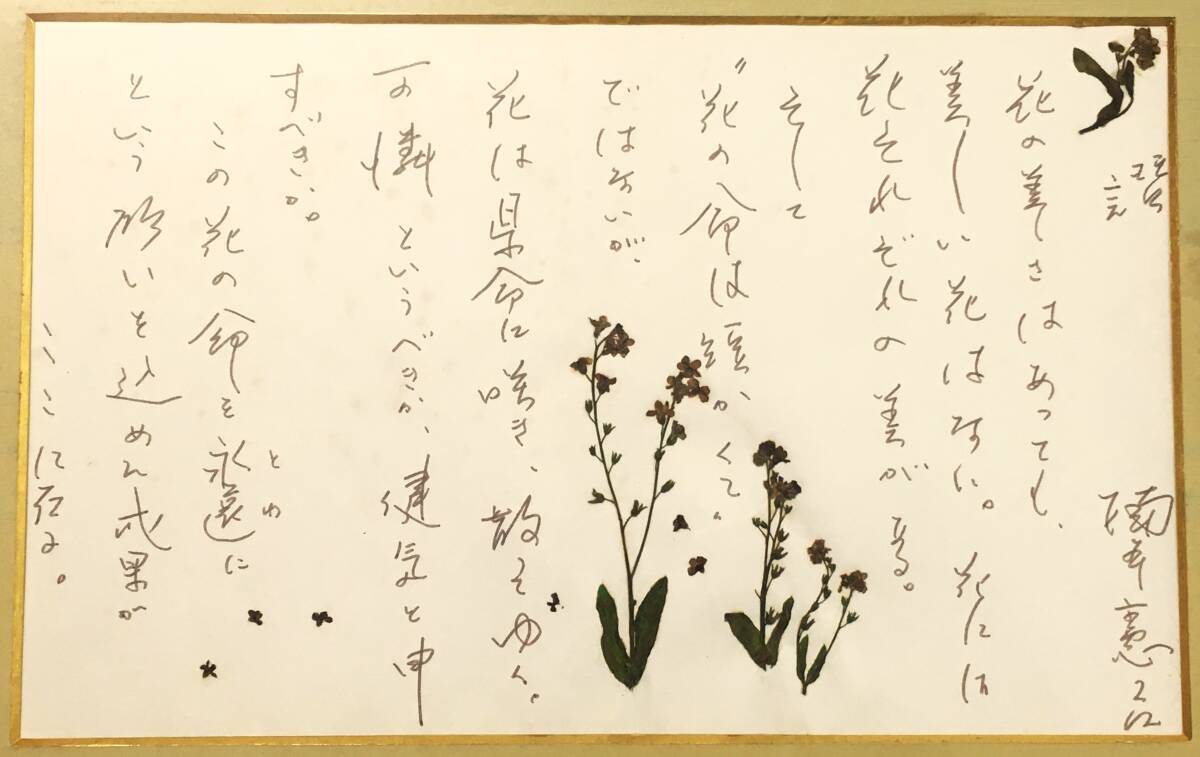 讃言
楠本憲吉
花の美しさはあっても、
美しい花はない。花には
花それぞれの美が在る。
そして
〝花の命は短かくて〟
ではないが、
花は懸命に咲き、散りゆく。
可憐というべきか、健気と申
すべきか。
この花の命を永遠に
とわ
という願いを込めた成果が
ここに在る。